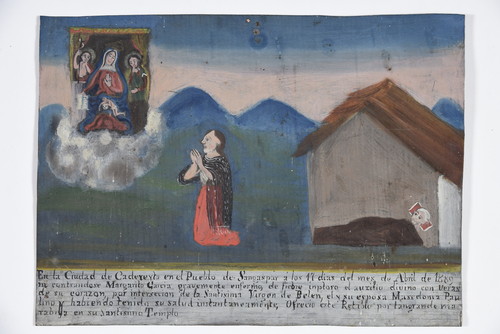 En la Ciudad de Cadereyta en el Pueblo de Samaspar a los 14 dias del mes de Abril de
contrandose Margarito Garcia, gravemente enfermo, de fiebre imploro el auxilio divino con veras
de su corazon, por intersecion de la Santisima Virgen de Belen, el y su esposa Maxedonia Pau
lino y habiendo tenido su salud instantaneamente, Ofrecio este Retablo por tan grande ma
rabilla en su Santisimo Templo.